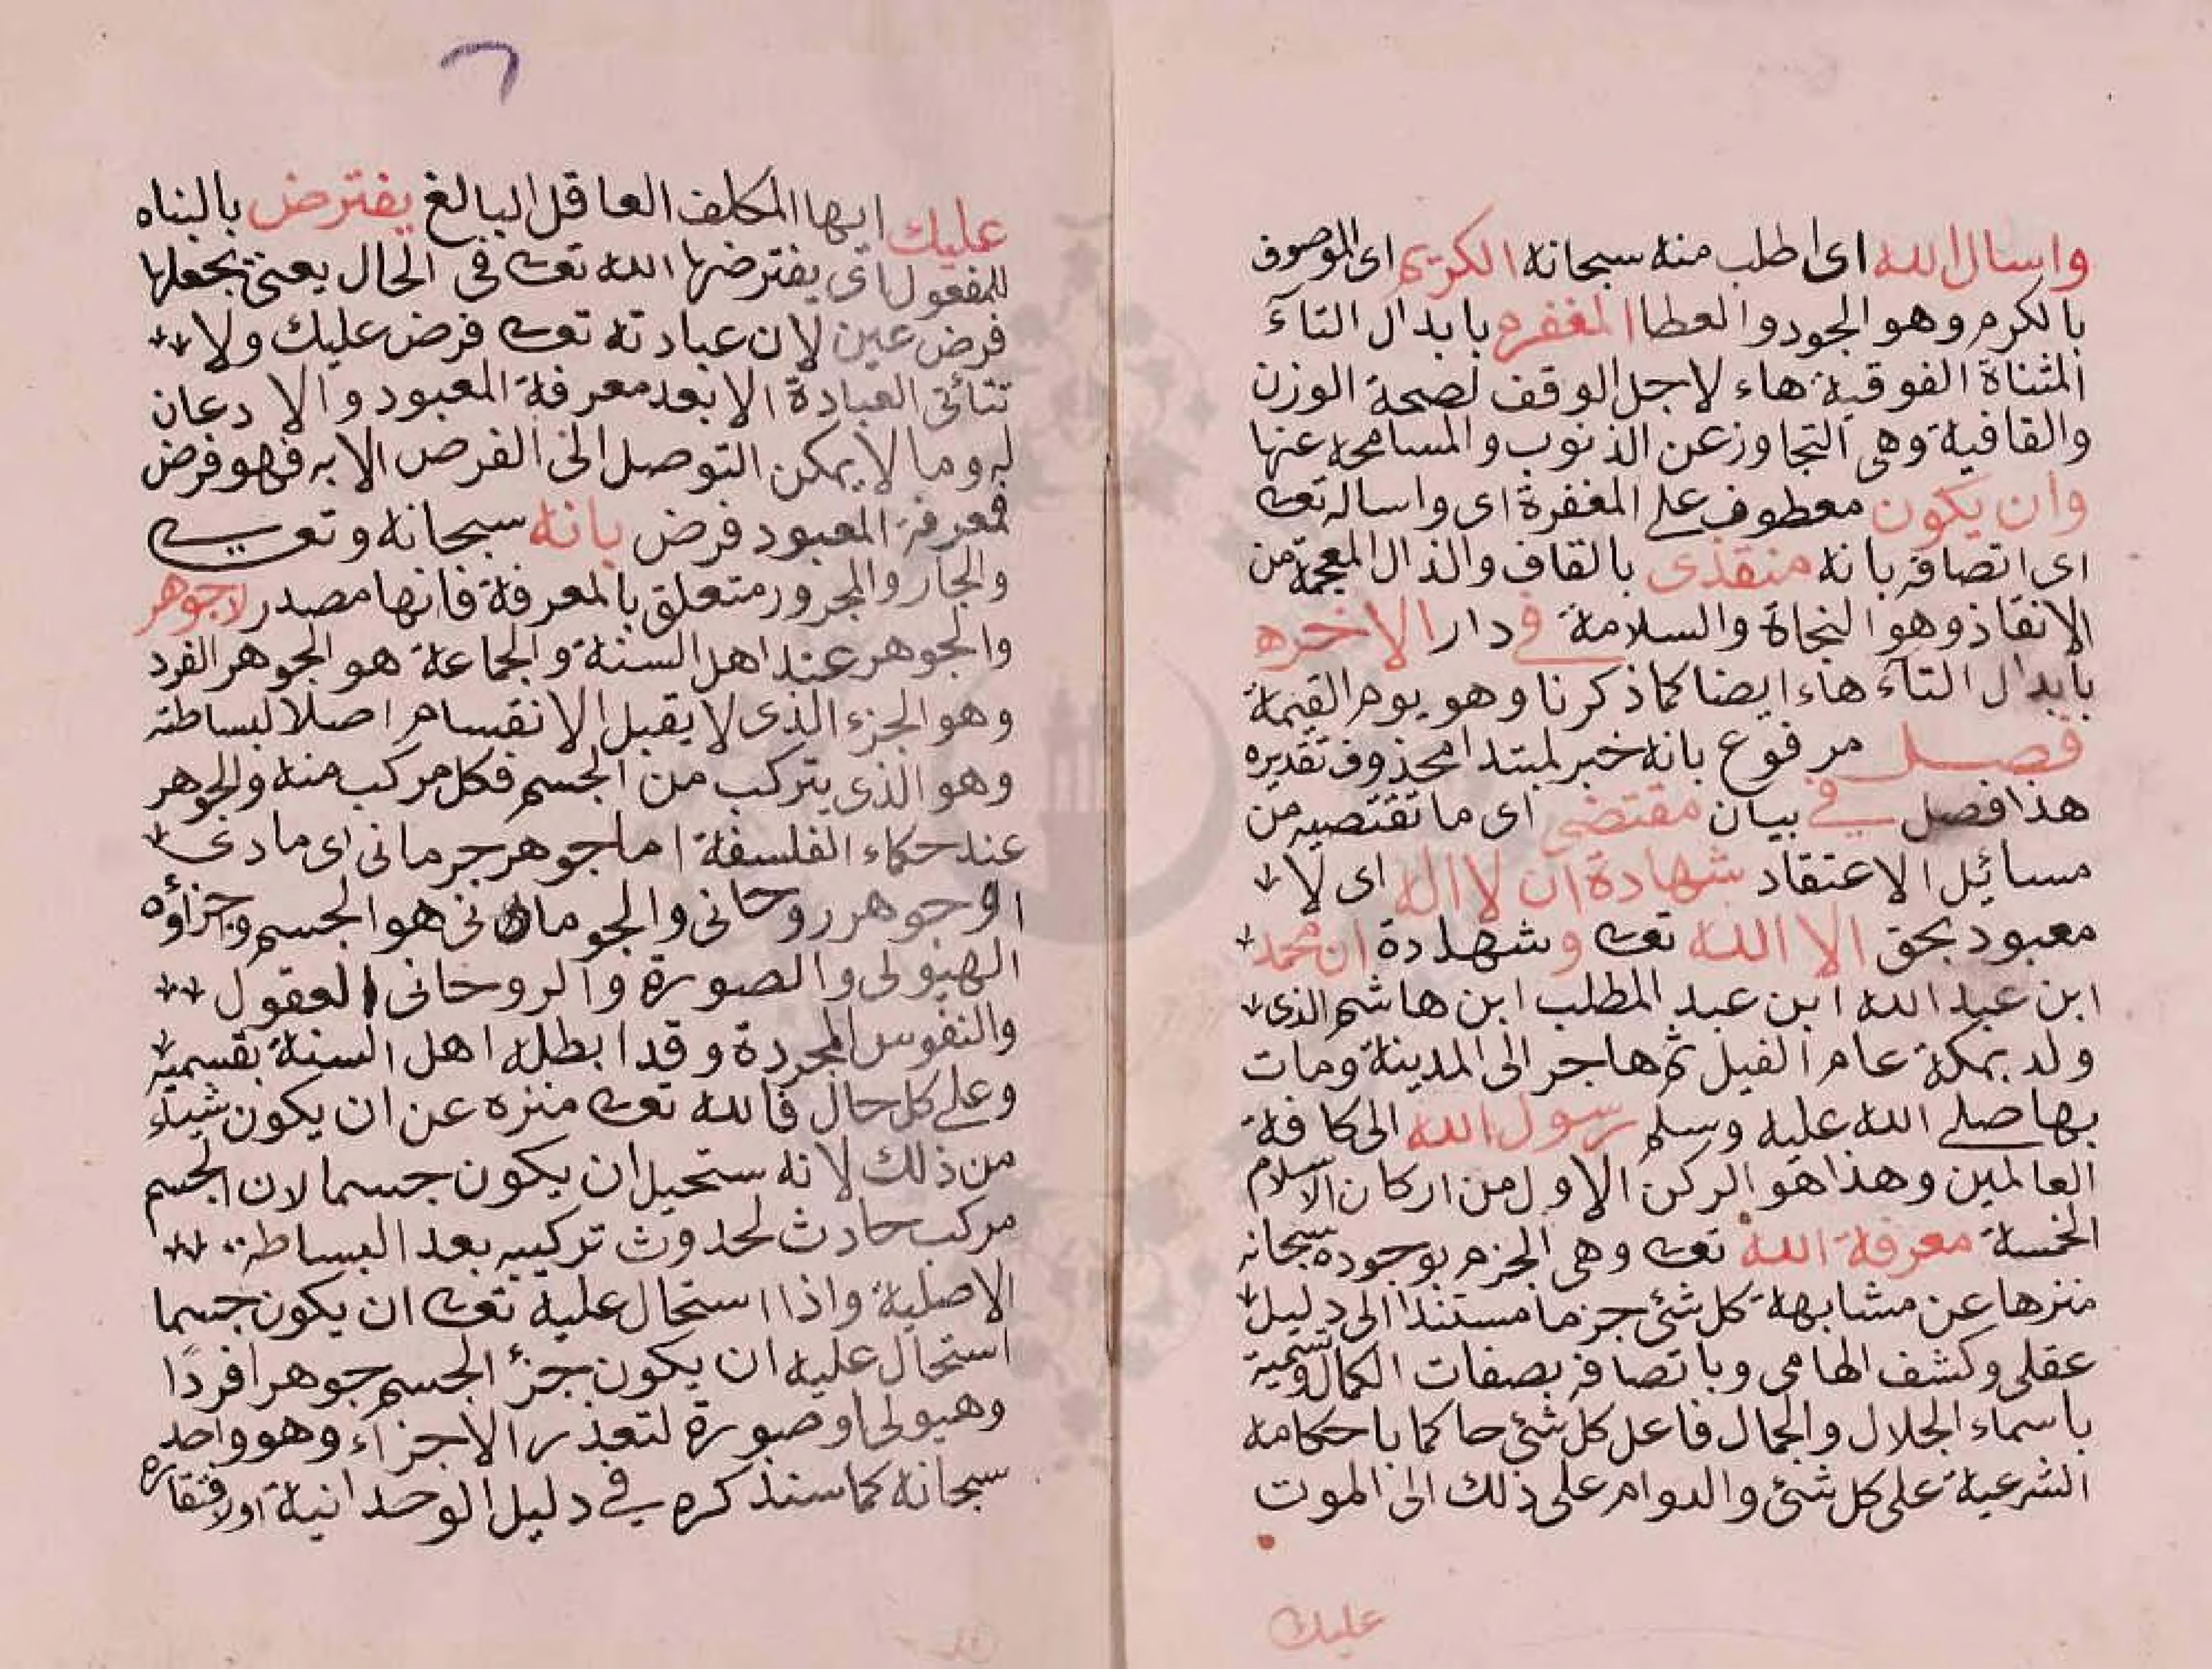 واسال الله اى اطلب منه سبحانه الكريم اى الموصوف
بالكرم وهو الجود والعطا المغفره بابدال التآء
المثناة الفوقية هاء لاجل الوقف لصحة الوزن
والقافية وهى التجاوز عن الذنوب والمسامحة عنها
وان يكون معطوف على المغفرة اى واساله تعالى
اى اتصافه بانه منقذى بالقاف والذال المعجمة من
الانقاذ وهو النجاة والسلامة فى دار الاخره
بابدال التآء هاء ايضا كما ذكرنا وهو يوم القيمة
فصل مرفوع بانه خبر لمبتدا محذوف تقديره
هذا فصل في بيان مقتضى اى ما تقتضيه من
مسائل الاعتقاد شهادة ان لا اله اى لا
معبود بحق الا الله تعالى و شهادة ان محمد
ابن عبد الله ابن عبد المطلب ابن هاشم الذى
ولد بمكة عام الفيل ثم هاجر الى المدينة ومات
بها صلى الله عليه وسلم رسول الله الى كافة
العالمين وهذا هو الركن الاول من اركان الاسلام
الخمسة معرفة الله تعالى وهى الجزم بوجوده سبحانه
منزها عن مشابهة كل شئ جزما مستندا الى دليل
عقلى وكشف الهامى وباتصافه بصفات الكمال وتسميه
باسماء الجلال والجمال فاعل كل شئ حاكما باحكامه
الشرعية على كل شئ والدوام على ذلك الى الموت
عليك
٦
عليك ايها المكلف العاقل البالغ يفترض بالبناه
للمفعول اى يفترضها الله تعالى فى الحال يعنى يجعلها
فرض عين لان عبادته تعالى فرض عليك ولا
تتائتى العبادة الا بعد معرفة المعبود والادعان
له وما لا يمكن التوصل الى الفرص الا به فهو فرض
فمعرفة المعبود فرض بانه سبحانه وتعالى
والجار والمجرور متعلق بالمعرفة فانها مصدر لا جوهر
والجوهر عند اهل السنة والجماعة هو الجوهر الفرد
وهو الجزء الذى لا يقبل الانقسام اصلا لبساطته
وهو الذى يتركب من الجسم فكل مركب منه والجوهر
عند حكاء الفلسفة اما جوهر جرمانى اى مادى
او جوهر روحانى والجو مانى هو الجسم وجزاؤه
الهيولى والصورة والروحانى العقول
والنفوس المجردة وقد ابطله اهل السنة بقسميه
وعلى كل حال فالله تعالى منزه عن ان يكون شيئاء
من ذلك لانه ستحيل ان يكون جسما لان الجسم
مركب حادث لحدوث تركيبه بعد البساطه
الاصلية واذا استحال عليه تعالى ان يكون جسما
استحال عليه ان يكون جزئ الجسم جوهرا فردًا
وهيولى او صورة لتعذر الاجزآء وهو واحد
سبحانه كما سنذكره في دليل الوحدانية اولافتقاره